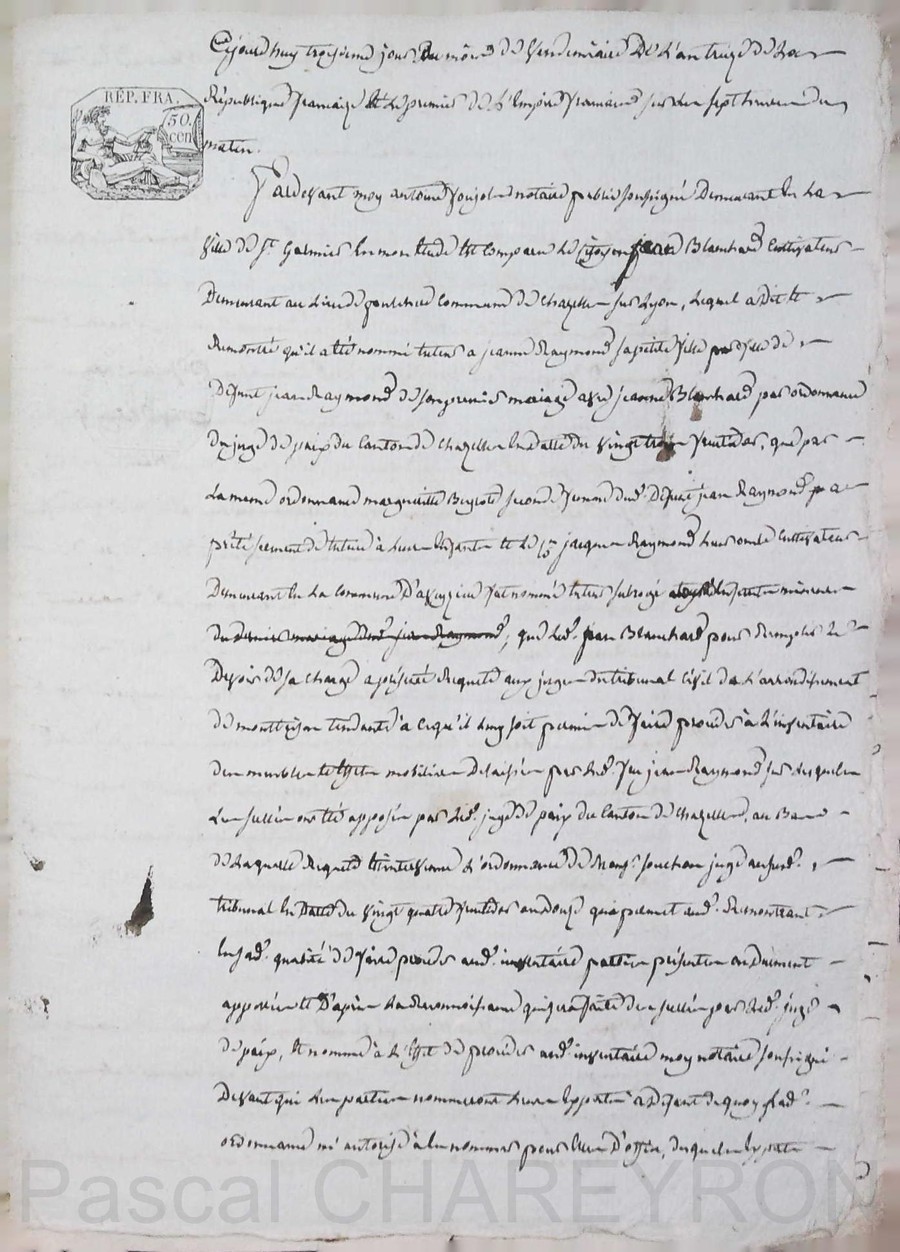 Cejourd'huy troisieme jour du mois de vendemiaire de l'an treize de la
République française et le premier de l'Empire français sur les sept heures du
matin.
RÉP. FRA.
50.
cen
Pardevant moy antoine notaire public soussigné Demeurant en la
ville de St. Galmier en mon etude est comparu le Citoyen jean Blanchard Cultivateur
Demeurant au lieu de commune de Chazelle sur Lyon, lequel a dit et
Remontré qu'il a été nommé tuteur a jeanne Raymond sa petite fille de
Défunt jean Raymond de son premier mariage avec jeanne Blanchard par ordonnance
du juge de paix du Canton de Chazelle en datte du vingt trois ventose, que par
La meme ordonnance marguerite seconde femme dud. Défunt jean Raymond a
prété serment de tutrice à leurs Enfants et le Cn. jacques Raymond leur oncle Cultivateur
Demeurant en la Commune D'aveyzieu fut nommé tuteur subrogé
du dernier mariage dud. jean Raymond, que led. jean Blanchard pour Remplir le
Devoir de sa charge a présenté Requete aux juges du tribunal Civil de L'arrondissement
de montbrison tendante à ce qu'il luy soit permis de faire proceder à L'inventaire
des meubles et effets mobiliers Delaissés par led. feu jean Raymond sur lesquels
Les scellés ont été apposés par led. juge de paix du Canton de Chazelle, au Bas
de Laquelle Requete est intervenue L'ordonnance de Monsr. juge aususd.
tribunal en Datte du vingt quatre ventose an douze qui permet aud. Remontrant
en sad. qualité de faire proceder aud. inventaire parties présentes ou duement
appellées et D'après La Reconnoissance qui sera faite des scellés par led. juge
de paix, et nommé à L'effet de proceder aud. inventaire moy notaire soussigné
Devant qui Les parties nommeront leurs Experts a Défaut de quoy lad.
ordonnance m'autorise à les nommer pour elles D'office, desquels Experts
Pascal CHAREYRON